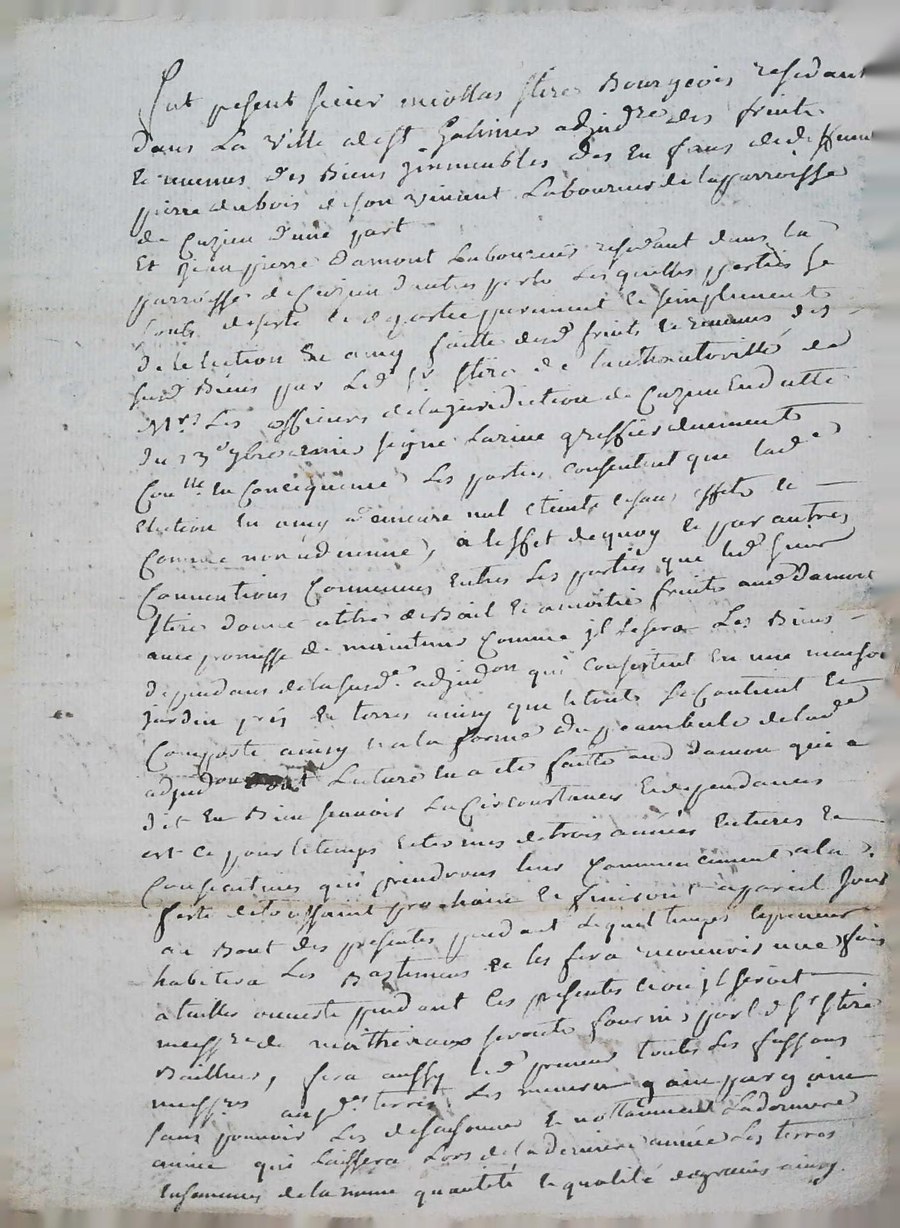 fut présent sieur nicollas stire Bourgeois residant
dans La Ville de st Galmier adjudre des fruits
Et revenus des Biens jmmeubles des En fans de deffunt
pierre dubois de son vivant Laboureur de la parroisse
de Cuzieu d'une part
Et Jean pierre Damont Laboureur residant dans La
parroisse de Cuzieu d'autre parts Lesquelles parties se
sont desisté et departie purement et simplement
de Election En amy faitte desd fruits Et revenus des
susd Biens par Led sr stire de Lauthautorité de
Mrs Les officiers de la jurisdiction de Cuzieu En datte
du 13e 9bre signé Larine greffier duement
Conlle En Conséquence Les parties consentent que lad
Election En amy demeure nul et sans effets et
Comme non advenue, a leffet de quoy Et par autres
Conventions Convenues Entres Les parties que led sieur
stire donne a titre de Bail Et a moitié fruits aud Damont
avec promesse de maintenir Comme jl Le sera Les Biens
dependans de la susde adjudon qui consistent En une maison
jardin prés Et terres ainsy que le tout Se Contient Et
Comporte ainsy a la forme du preambule de lade
adjudon dont Lecture En a été faitte aud damon qui a
dit En Bien sçavoir La Circonstances Et dependances
est ce pour le temps Et termes de trois années Entieres Et
Consecutives qui prendrons leur Commencement a la
feste de toussaint prochaine Et finiront a pareil Jour
au Bout des presentes pendant Lequel temps le preneur
habitera Les Bastimens Et les fera une fois
a tuilles pendant Les presentes et ou jl seroit
de mathereaux seronts fournis par led sr stire
Bailleur, fera aussy led preneur toutes Les fassons
auxdes terres Les mener gain par gain
sans pouvoir Les desaisonner Et nottamment La derniere
année qui Laissera Lors de la derniere année Les terres
Ensemencés de la meme quantité Et qualité de grains ainsy